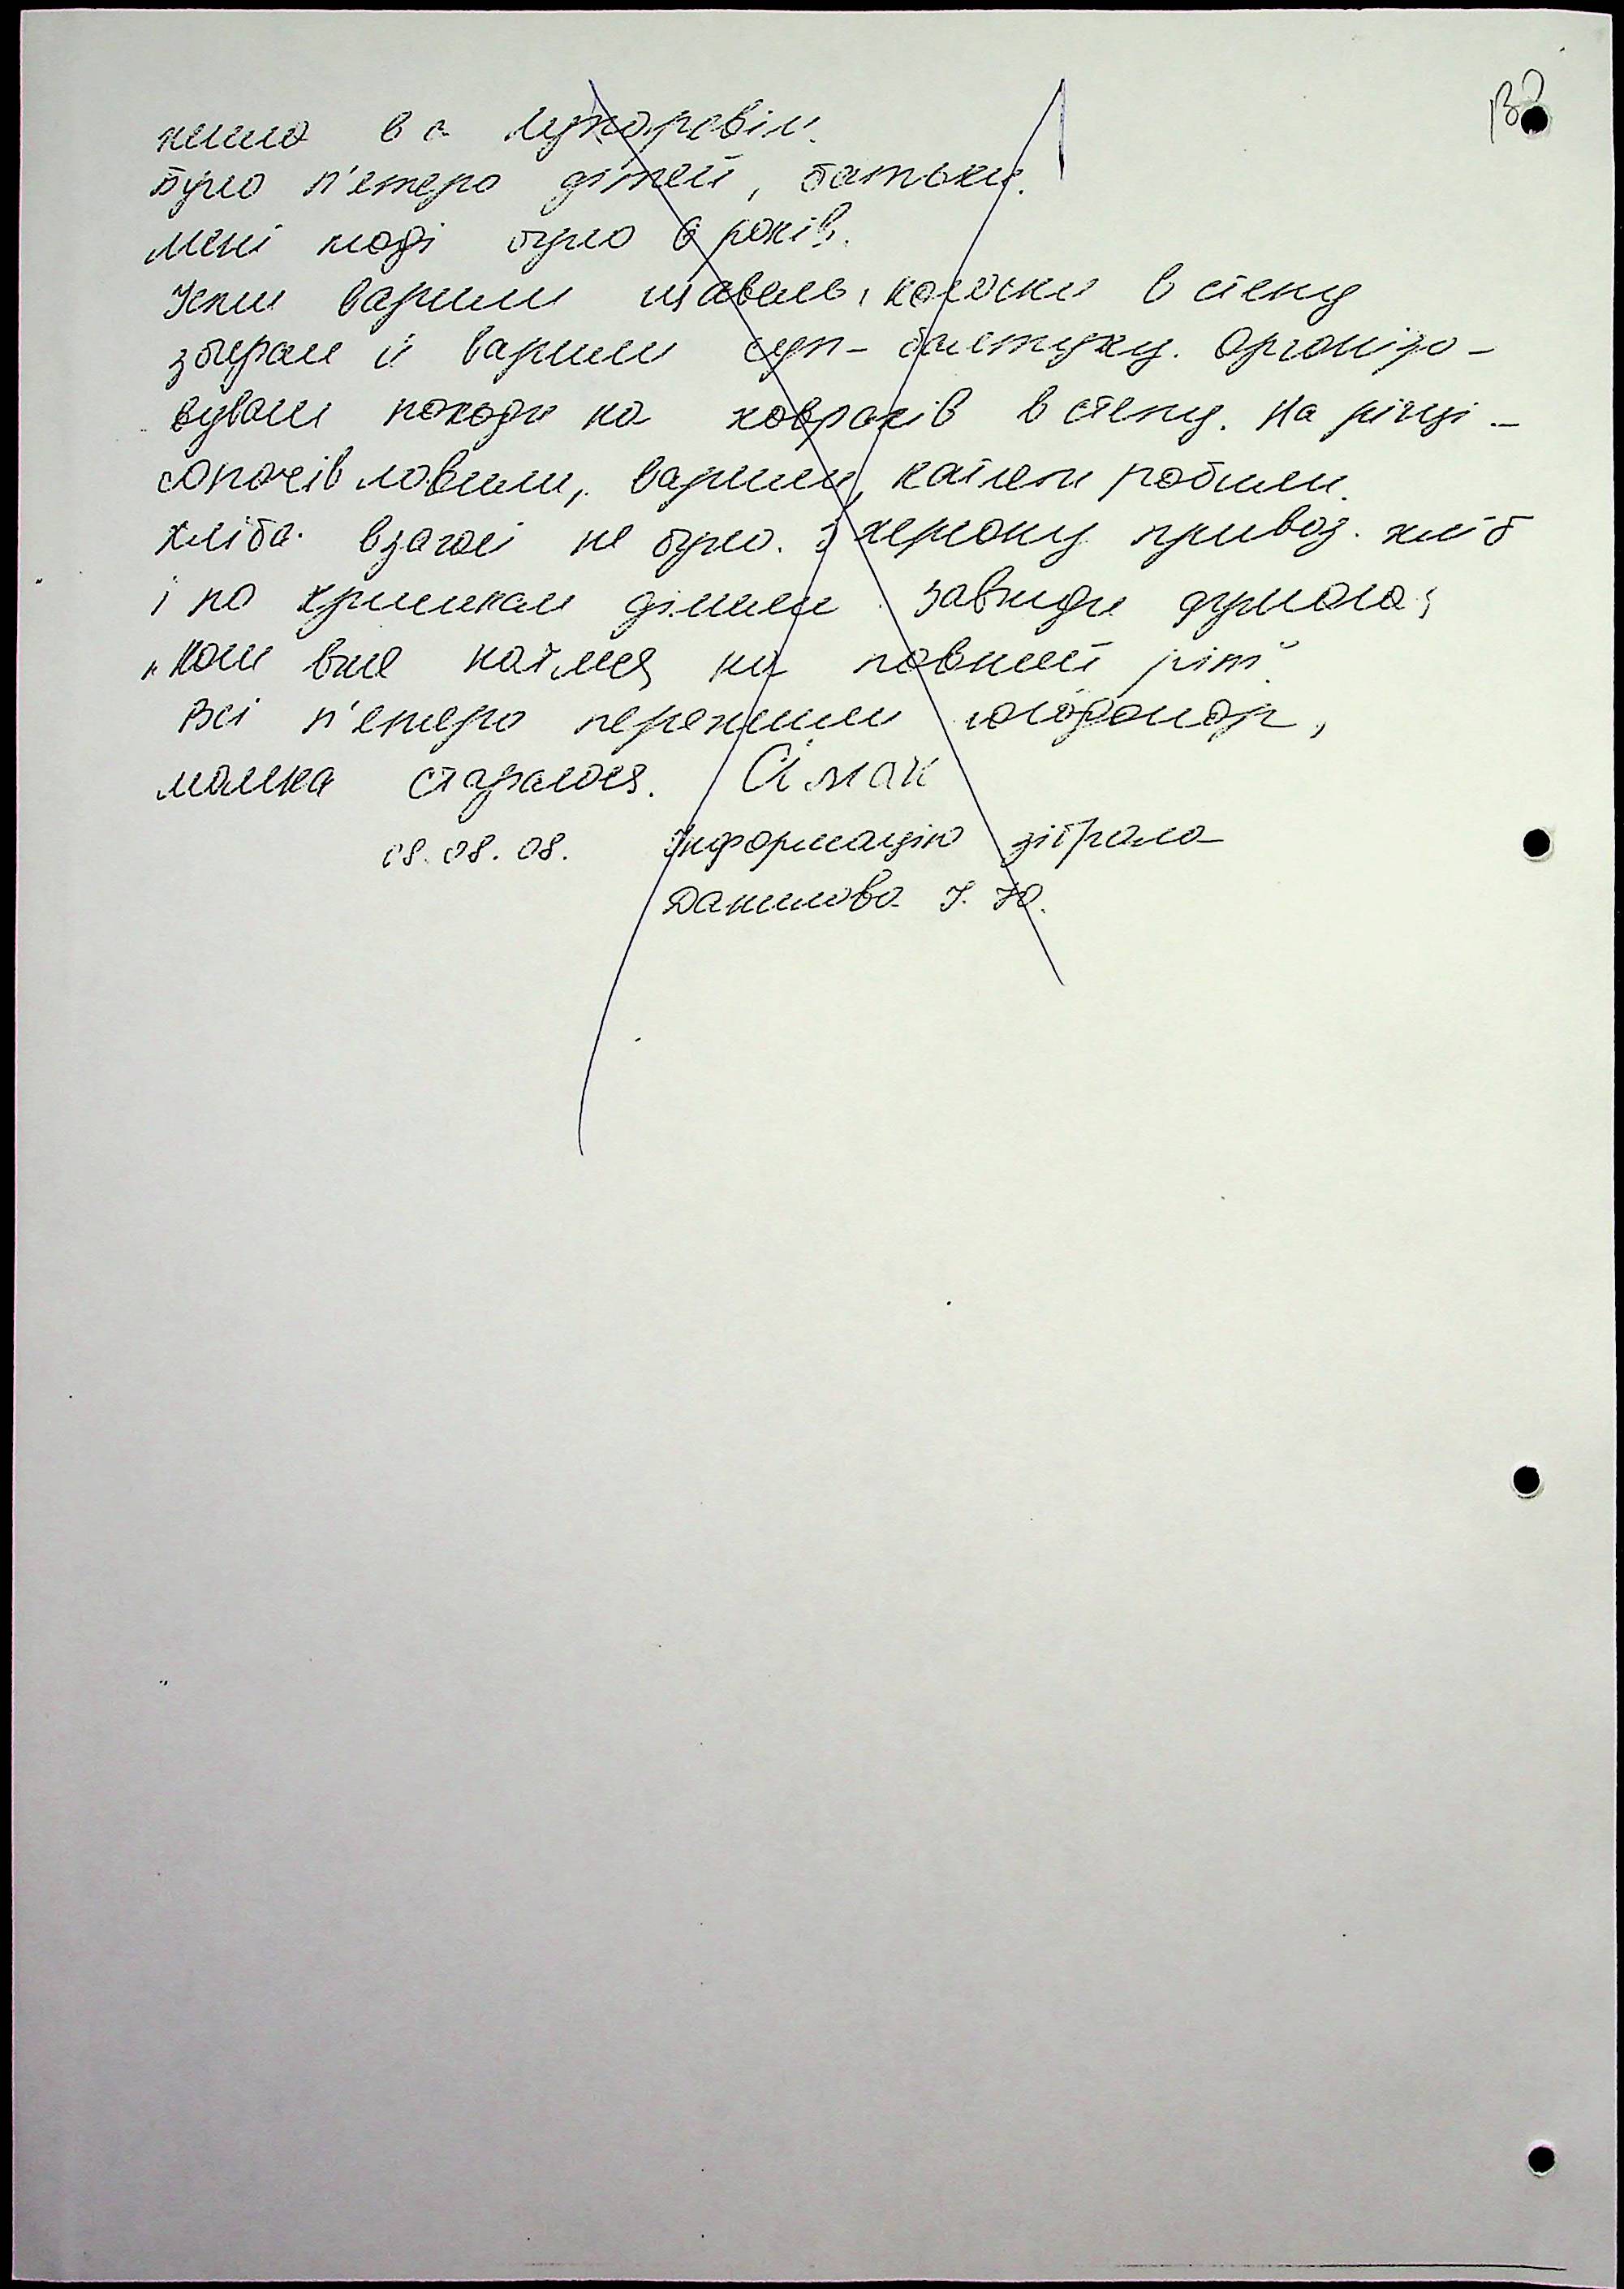 жила в с. Мукаровім.
Було п'ятеро дітей, батьки.
Мені тоді було 6 років.
Їжи варили щавель, колоски в степу
збирали й варили суп-балтушку. Організо-
вували походи на ховрахів в степу. На річці –
сопачів ловили, варили, катлети робили.
Хліба взагалі не було. З Херсону привоз. хліб
і по кришкам ділили. Завжди думала;
„Коли вже наїмся на повний ріт".
Всі п'ятеро пережили голодомор,
мамка старалась. Сімак
08.08.08. Інформацію зібрала
Данилова І. Ю.